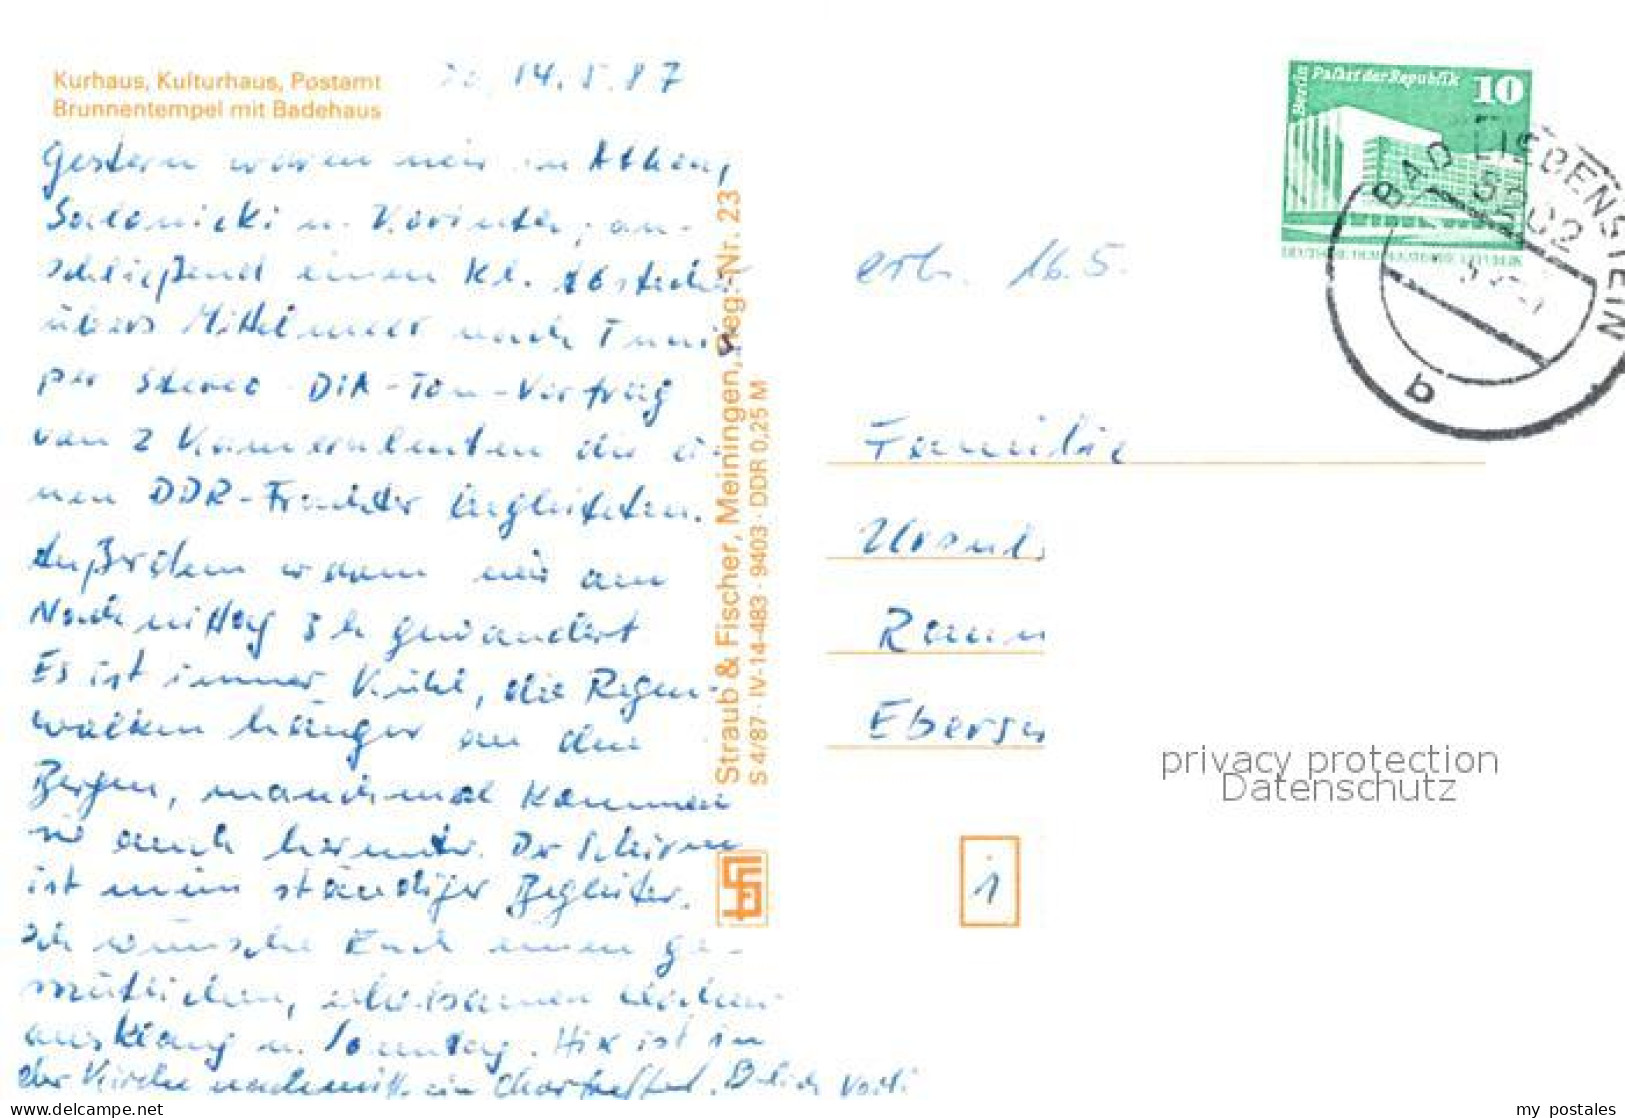 Kurhaus, Kulturhaus, Postamt
Brunnentempel mit Badehaus
14.5.87
Gestern waren wir in Athen,
Salonicki u. Korinth, an-
schließend einen kl. Abstecher
übers Mittelmeer nach Tunis
per Stereo DIA-Ton-Vortrag
von 2 Kameraleuten die ei-
nen DDR-Frachter begleiteten.
Außerdem waren wir am
Nachmittag 3 h gewandert
Es ist immer kühl, die Regen-
wolken hängen an den
Bergen, manchmal kommen
sie auch herunter. Der Schirm
ist mein ständiger Begleiter.
Ich wünsche Euch einen ge-
mütlichen, erholsamen Wochen-
ausklang u. Sonntag. Hier ist in
der Kirche nachmitt. ein Chortreffen.
Straub & Fischer, Meiningen, Reg.-Nr. 23
S 4/87 · IV-14-483 · 9403 · DDR 0,25 M
Berlin Palast der Republik 10
BAD LIEBENSTEIN
6202
b
erh. 16.5.
Familie
Ursul
Ebers
privacy protection
Datenschutz
i
my_postales
www.delcampe.net